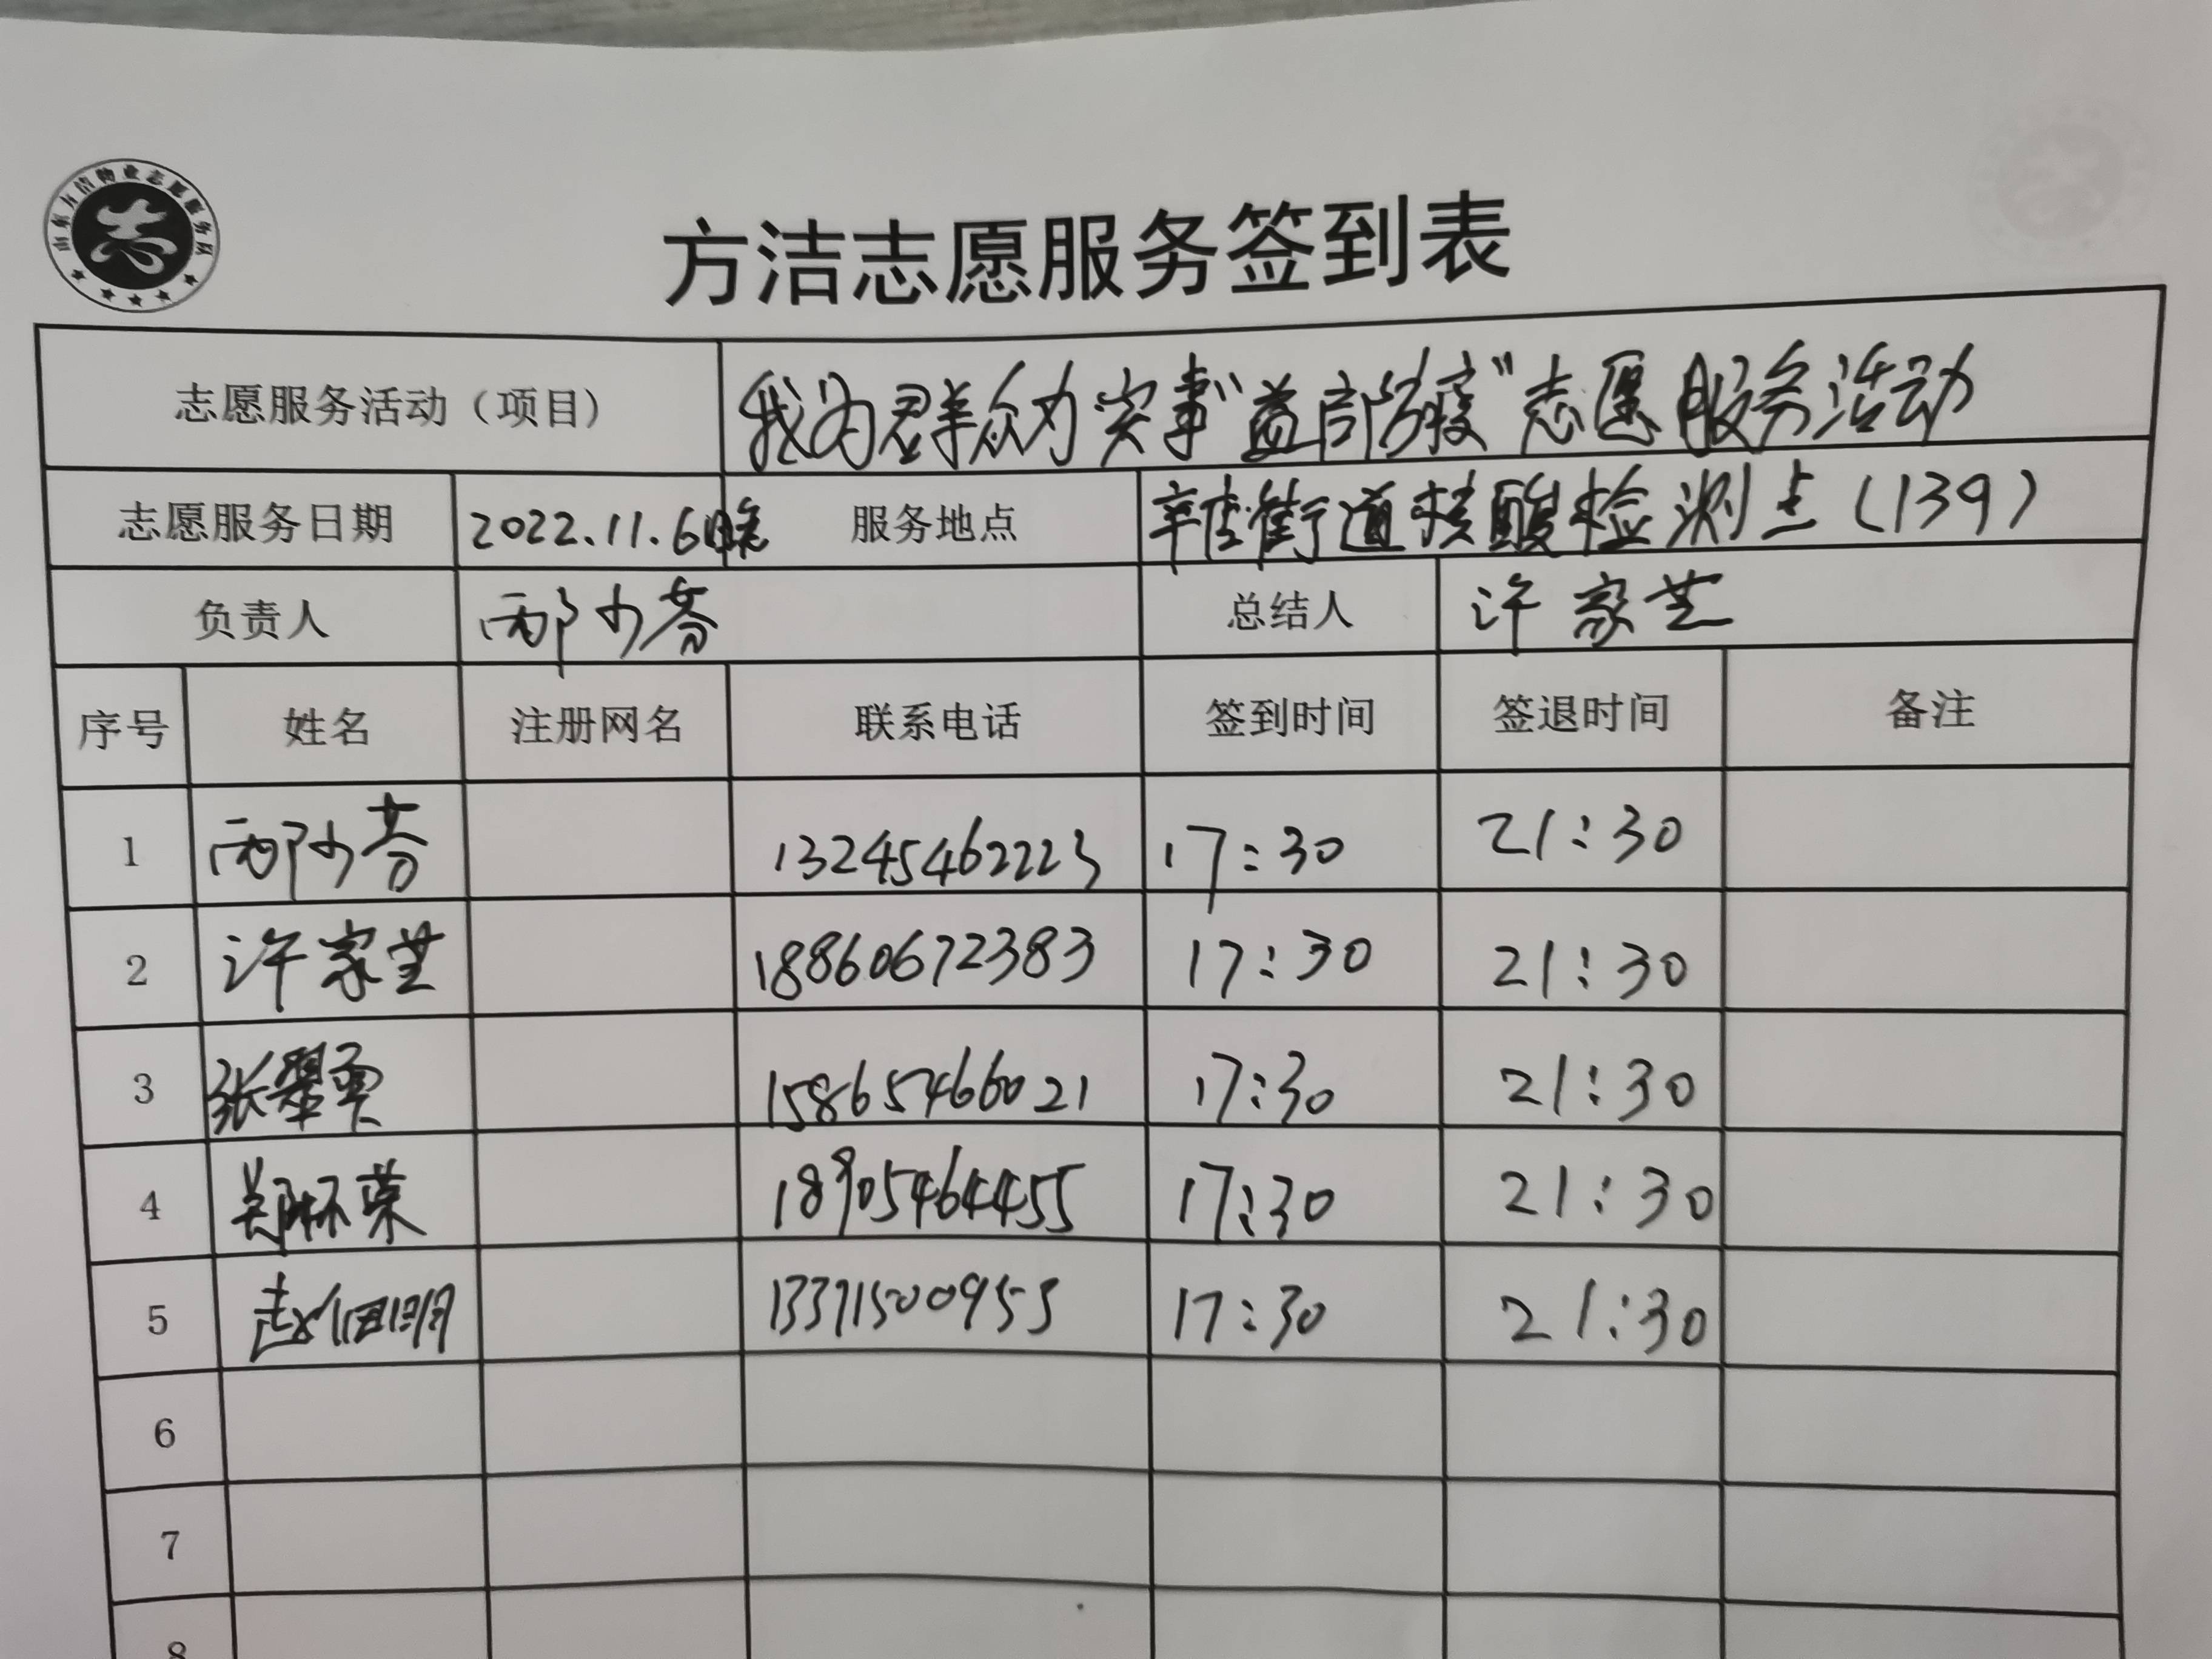 山东方洁物业志愿服务队
方洁志愿服务签到表
志愿服务活动（项目） 我为群众办实事"益部防疫"志愿服务活动
志愿服务日期 2022.11.6晚 服务地点 辛店街道核酸检测点（139）
负责人 邴少芬 总结人 许家芝
序号 姓名 注册网名 联系电话 签到时间 签退时间 备注
1 邴少芬 13245462223 17:30 21:30
2 许家芝 18860672383 17:30 21:30
3 张翠 15865466021 17:30 21:30
4 郑怀荣 18905464455 17:30 21:30
5 赵明 13371500953 17:30 21:30
6
7
8